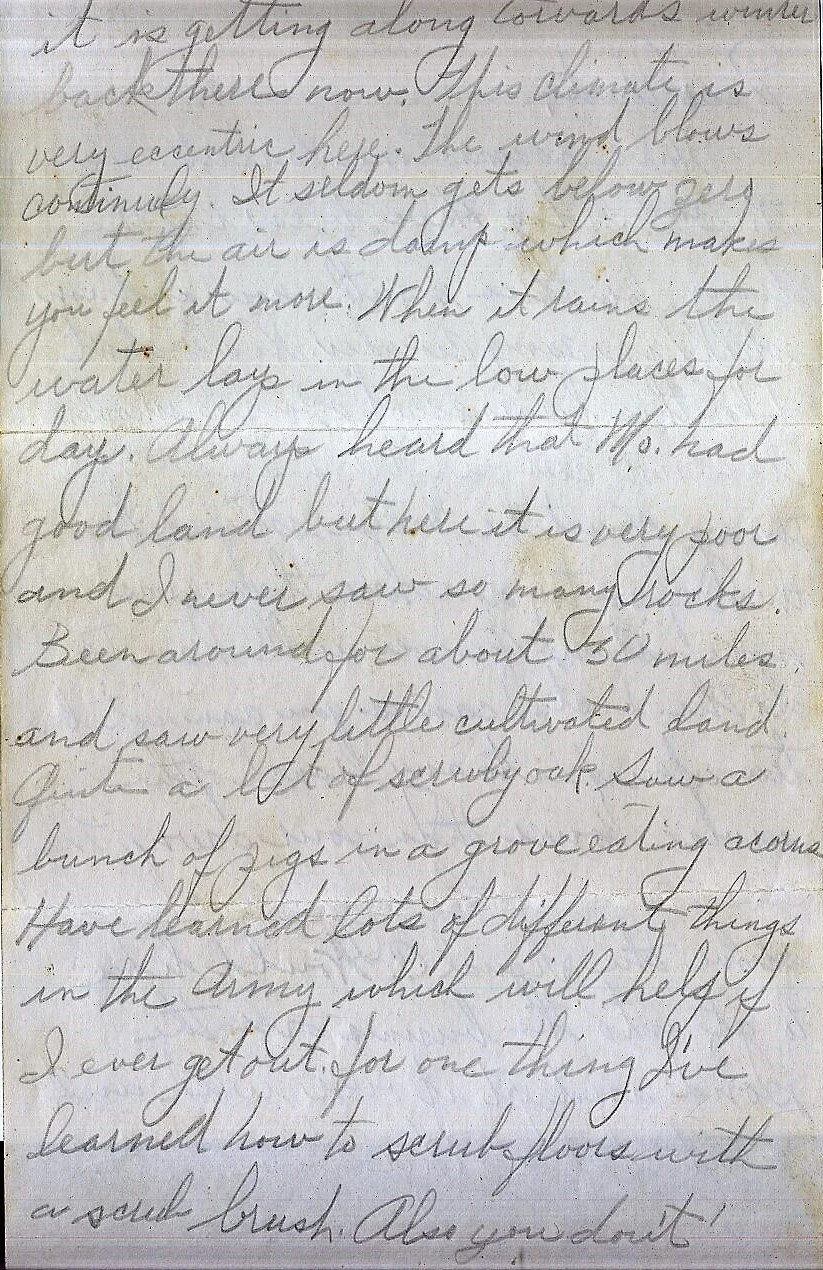 it is getting along towards winter
back there now. This climate is
very eccentric here. The wind blows
continuly. It seldom gets below zero
but the air is damp which makes
you feel it more. When it rains the
water lays in the low places for
day. Always heard that Mo. had
good land but here it is very poor
and I never saw so many rocks.
Been around for about 30 miles.
and saw very little cultivated land.
Quite a lot of scrubyoak. Saw a
bunch of pigs in a grove eating acorns
Have learned lots of different things
in the Army which will help if
I ever get out. for one thing I've
learned how to scrub floors with
a scrub brush. Also you don't